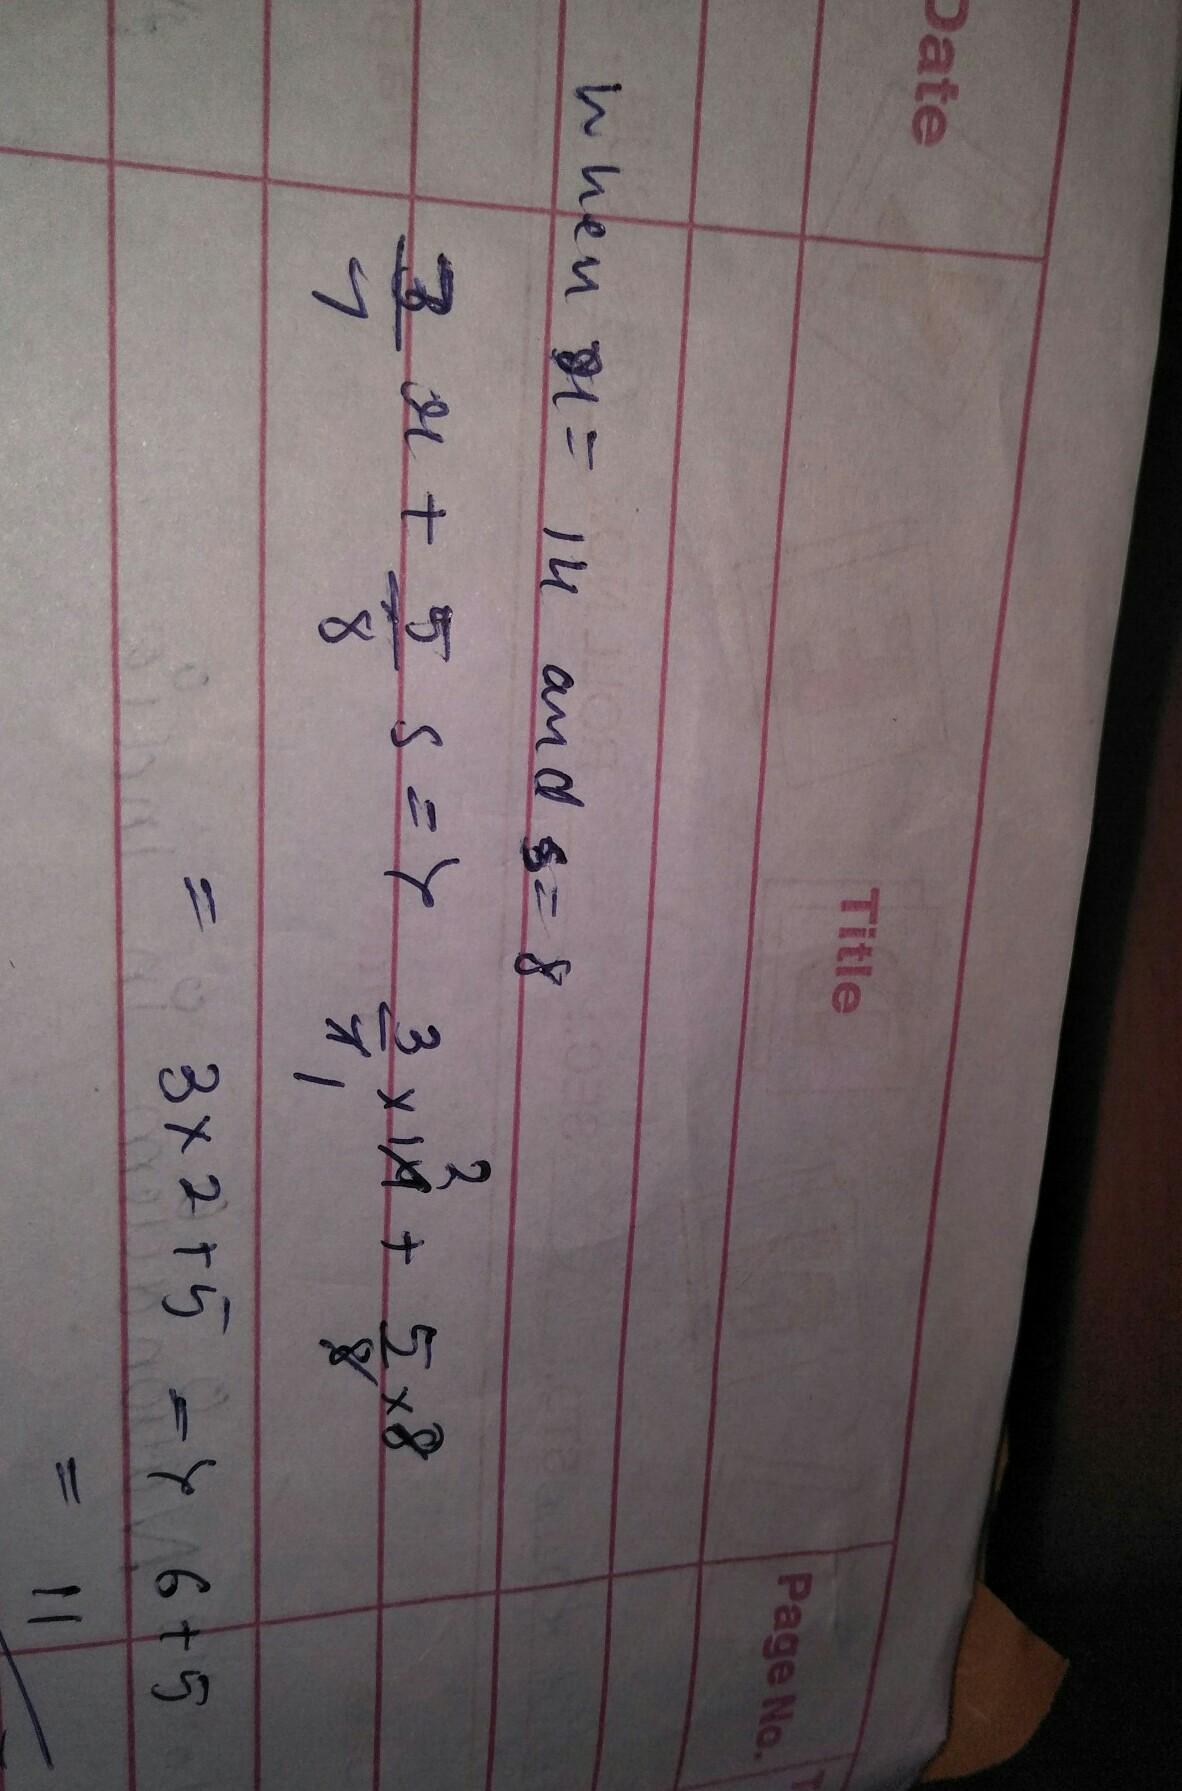 Date Title Page No.
when x = 14 and s = 8
3/7 x + 5/8 s => 3/7 1 × 14 2 + 5/8 × 8
= 3 × 2 + 5 => 6 + 5
= 11